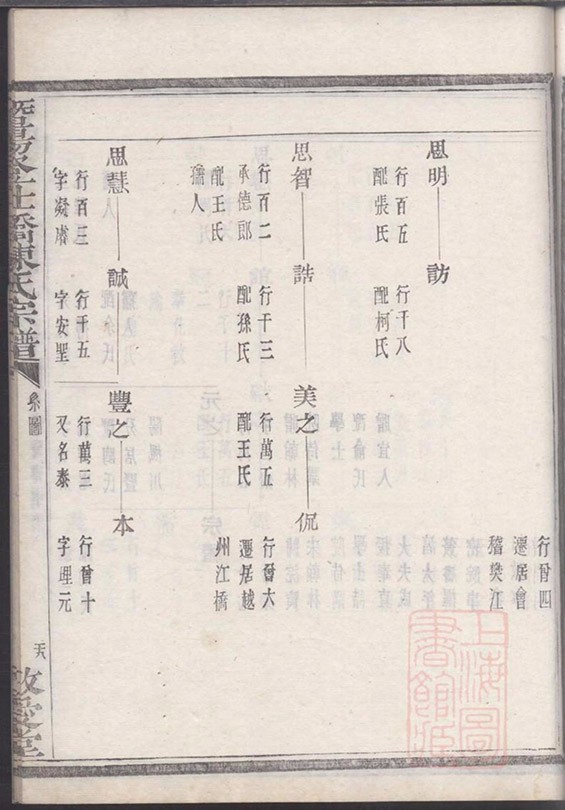 行晉四
遷居會
稽樊江
思明
訪
行百五
配張氏
行千八
配柯氏
思智
誥
美之
侃
行百二
承德郎
配王氏
孺人
行千三
配孫氏
行萬五
配王氏
行晉六
遷居越
州江橋
思慧
誠
豐之
本
行百三
字凝膚
行千五
字安聖
行萬三
又名泰
行晉十
字理元
橋陳氏宗譜
系圖
上海圖
書館藏